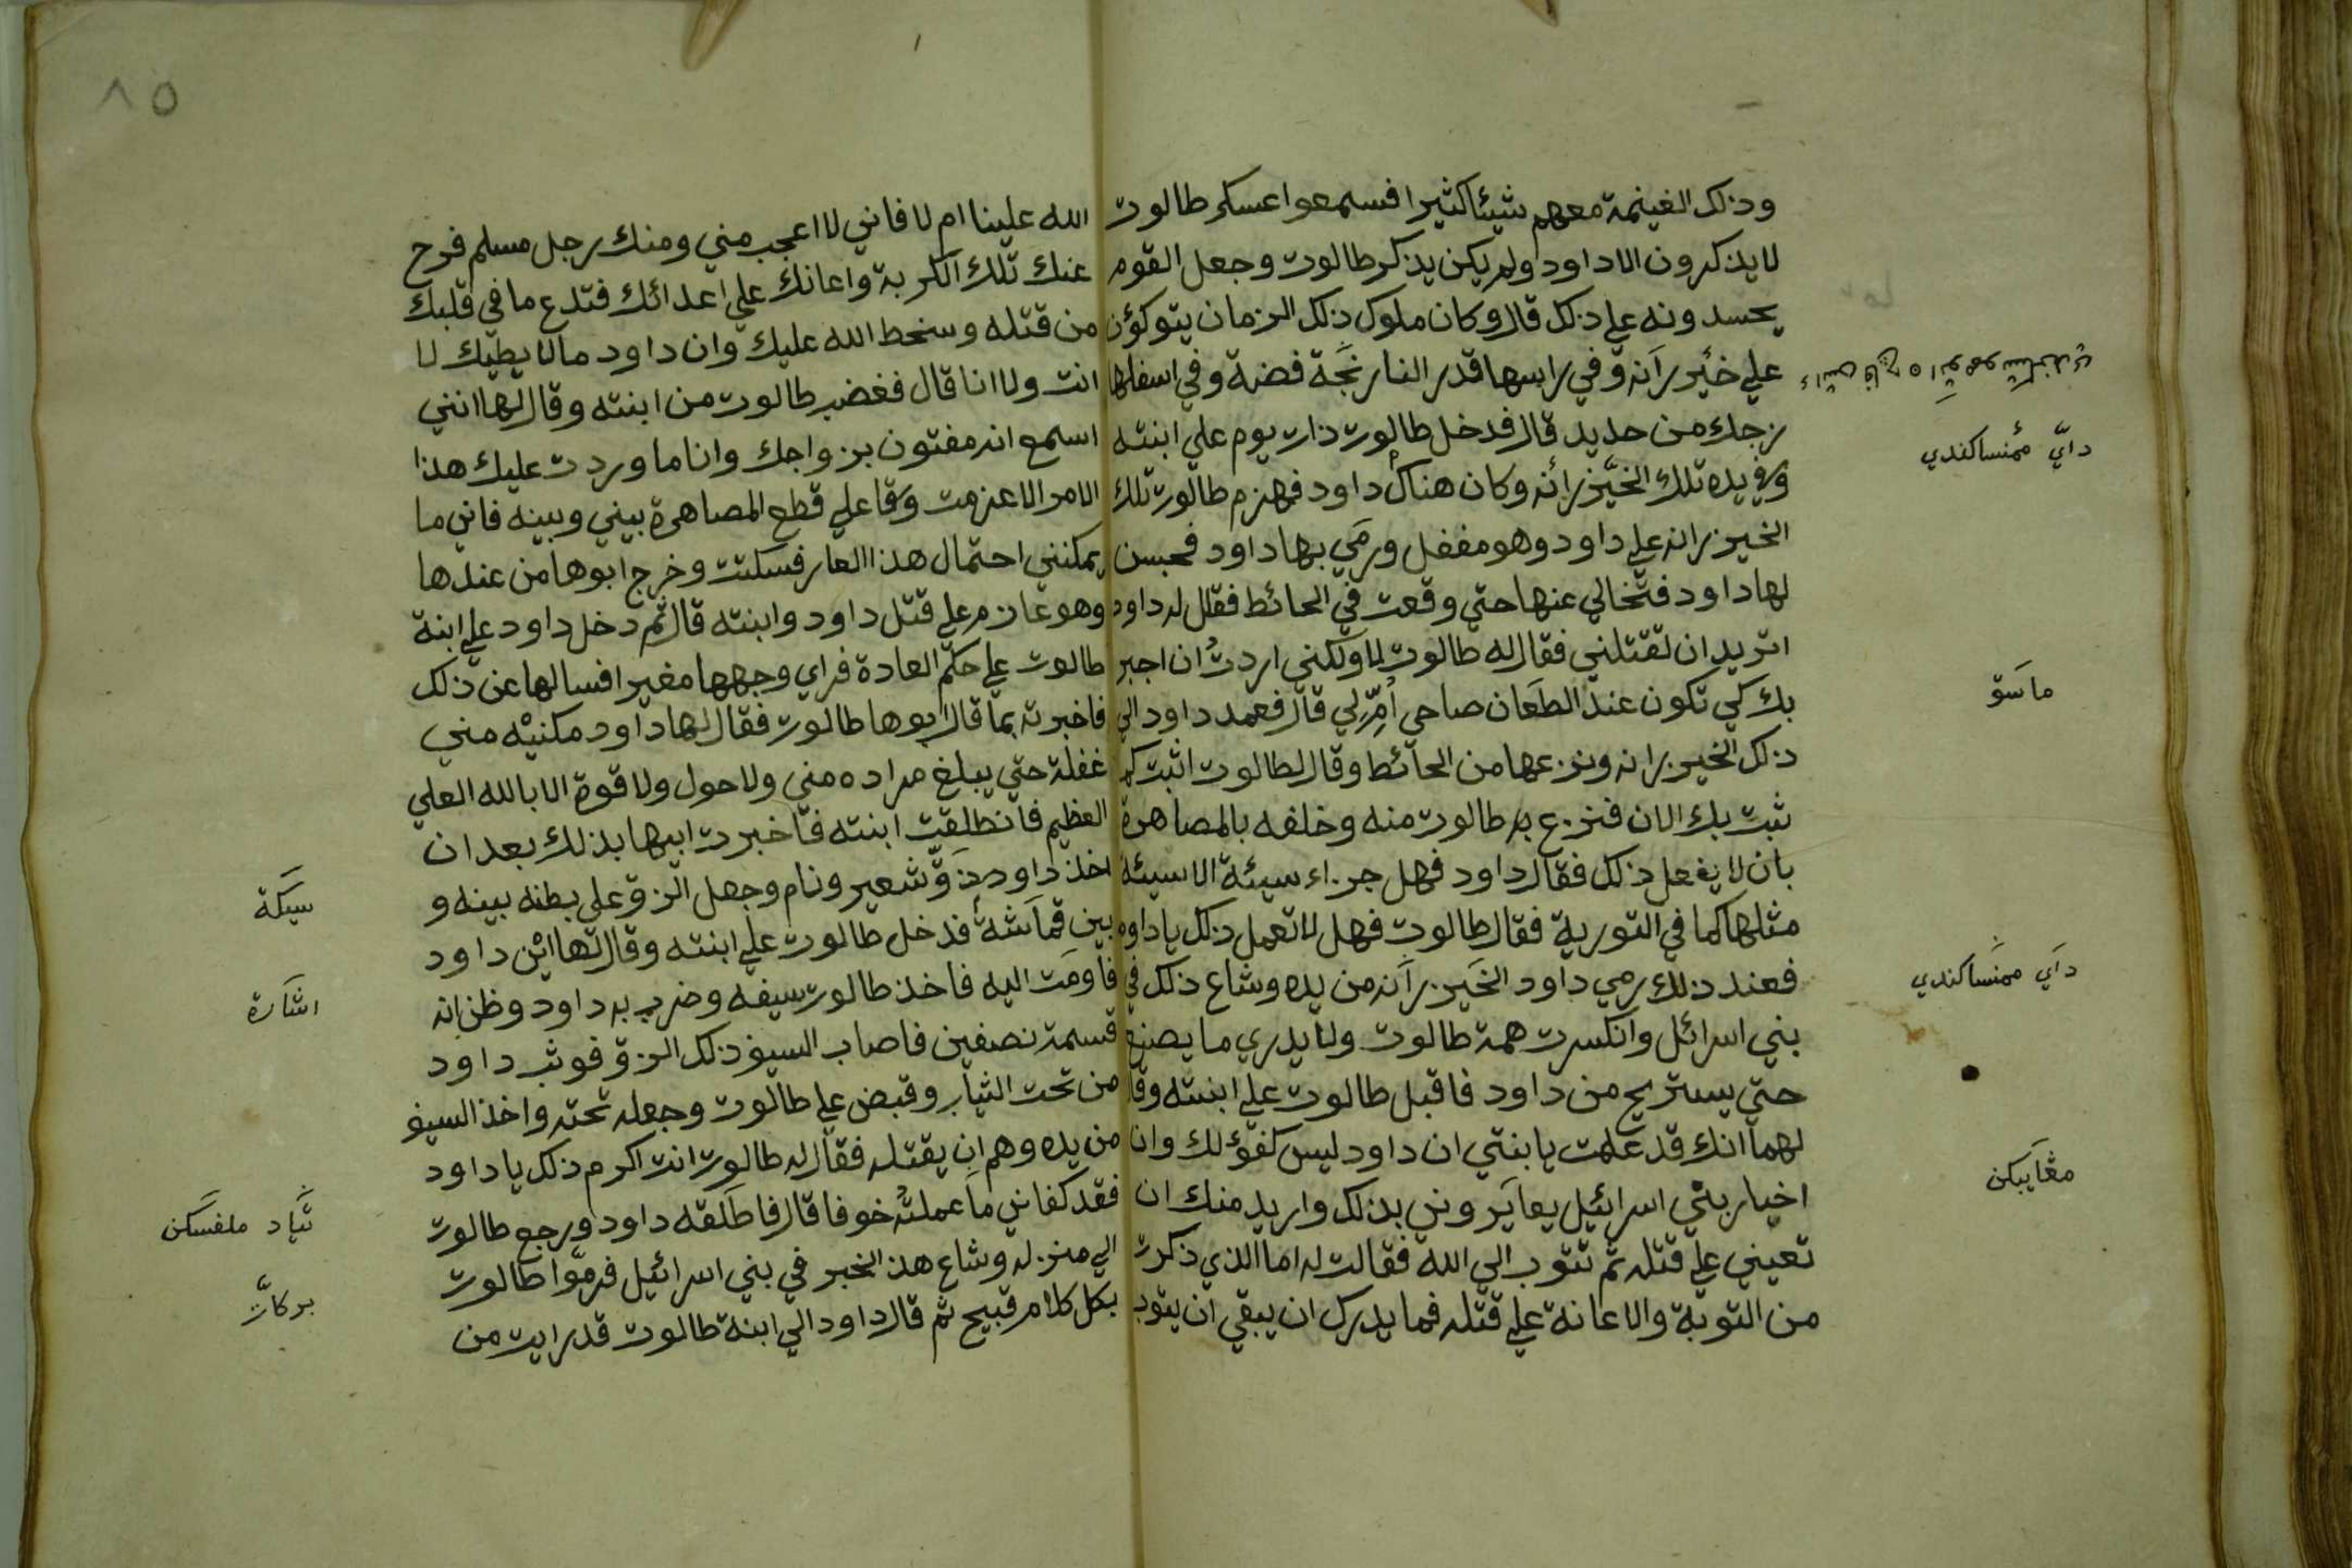 وذلك الغنيمة معهم شيئا كثيرا فسمعوا عسكر طالوت
لا يذكرون الا داود ولم يكن يذكر طالوت وجعل القوم
يحسدونه علي ذلك قال وكان ملوك ذلك الزمان يتوكؤن
علي خيزرانة وفي راسها قدر النارنجة فضة وفي اسفلها
زجك من حديد قال فدخل طالوت ذات يوم علي ابنته
وفي يده تلك الخيزرانه وكان هناك داود فهزم طالوت تلك
الخيزرانه علي داود وهو مغفل ورمي بها داود فحبسن
لها داود فتخالي عنها حتي وقعت في الحائط فقال له داود
اتريد ان تقتلني فقال له طالوت لا ولكني اردت ان اجبر
بك كي تكون عند الطعان صاحي امرلي قال فعمد داود الي
ذلك الخيزرانه ونزعها من الحائط وقال لطالوت اثبت كما
ثبت بك الان فنزع به طالوت منه وخلفه بالمصاهرة
بان لا يفعل ذلك فقال داود فهل جزاء سيئة الا سيئة
مثلها كما في التورية فقال طالوت فهل لا تعمل ذلك يا داود
فعند ذلك رمي داود الخيزرانه من يده وشاع ذلك في
بني اسرائل وانكسرت همة طالوت ولا يدري ما يصنع
حتي يستريح من داود فاقبل طالوت علي ابنته وقا
لهما انك قد علمت يا بنتي ان داود ليس كفؤ لك وان
اخيار بني اسرائيل يعايرونني بذلك واريد منك ان
تعيني علي قتله ثم تتوب الي الله فقالت له اما الذي ذكرت
من التوبة والاعانة علي قتله فما يدرك ان يبقي ان يتوب
داي ممنساكندي
ماسوق
داي ممنساكندي
مغايبكن
٨٥
الله علينا ام لا فاني لا اعجب مني ومنك رجل مسلم فرح
عنك تلك الكربة واعانك علي اعدائك فتدع ما في قلبك
من قتله وسخط الله عليك وان داود ما لا يطيك لا
انت ولا انا قال فغضب طالوت من ابنته وقال لها انني
اسمع انه مفتون بزواجك وانا ما وردت عليك هذا
الامر الا عزمت وقا علي قطع المصاهرة بيني وبينه فاني ما
يمكنني احتمال هذا العار فسكتت وخرج ابوها من عندها
وهو عازم علي قتل داود وابنته قال ثم دخل داود علي ابنة
طالوت علي حكم العادة فراي وجهها مغيرا فسالها عن ذلك
فاخبرته بما قال ابوها طالوت فقال لها داود مكنيه مني
غفلة حتي يبلغ مراده مني ولا حول ولا قوة الا بالله العلي
العظيم فانطلقت ابنته فاخبرت ابيها بذلك بعد ان
اخذ داود زق شعير ونام وجعل الزق علي بطنه بينه و
بين قماشة فدخل طالوت علي ابنته وقال لها ائن داود
فاومت اليه فاخذ طالوت سيفه وضرب به داود وظن انه
قسمة نصفين فاصاب السيف ذلك الزق فوثب داود
من تحت الثياب وقبض علي طالوت وجعله تحته واخذ السيف
من يده وهم ان يقتله فقال له طالوت انت اكرم ذلك يا داود
فقد كفاني ما عملته خوفا قال فاطلقه داود ورجع طالوت
الي منزله وشاع هذا الخبر في بني اسرائيل فرموا طالوت
بكل كلام قبيح ثم قال داود الي ابنة طالوت قد رايت من
سيكة
اشارة
تياد ملفسكن
بركات